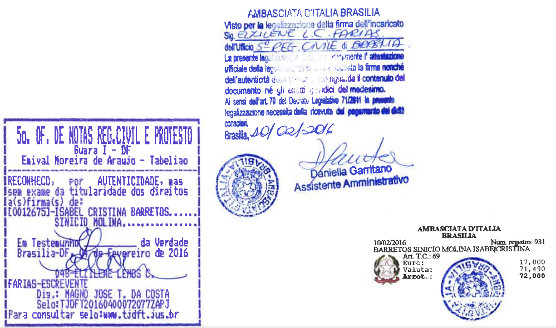 AMBASCIATA D'ITALIA BRASILIA
Visto per la legalizzazione della firma dell'incaricato
Sig. ELZILENE L.C. FARIAS
dell'Ufficio 5º REG. CIVILE di BRASILIA
La presente attestazione
ufficiale della la firma nonché
dell'autenticità contenuto del
documento né gli effetti giuridici del medesimo.
Ai sensi dell'art. 70 del Decreto Legislativo 71/2011 la presente
legalizzazione necessita della riscossione del pagamento dei diritti
consolari.
Brasilia, 10/02/2016
Daniella Garritano
Assistente Amministrativo
5o. OF. DE NOTAS REG.CIVIL E PROTESTO
Guara I - DF
Emival Moreira de Araujo - Tabeliao
RECONHECO, por AUTENTICIDADE, mas
sem exame da titularidade dos direitos
a(s)firma(s) de:
[0012675]-ISABEL CRISTINA BARRETOS......
SINICIO MOLINA.....................
Em Testemunho da Verdade
Brasilia-DF, de Fevereiro de 2016
048-ELZILENE LEMOS C.
FARIAS-ESCREVENTE
Dig.: MAGNO JOSE T. DA COSTA
Selo:TJDFT20160400072077ZAPJ
Para consultar selo:www.tjdft.jus.br
AMBASCIATA D'ITALIA
BRASILIA
10/02/2016 Num. registro: 931
BARRETOS SINICIO MOLINA ISABECRISTINA
Art. T.C.: 69
Euro: 17,000
Valuta: 71,490
Arrot.: 72,000